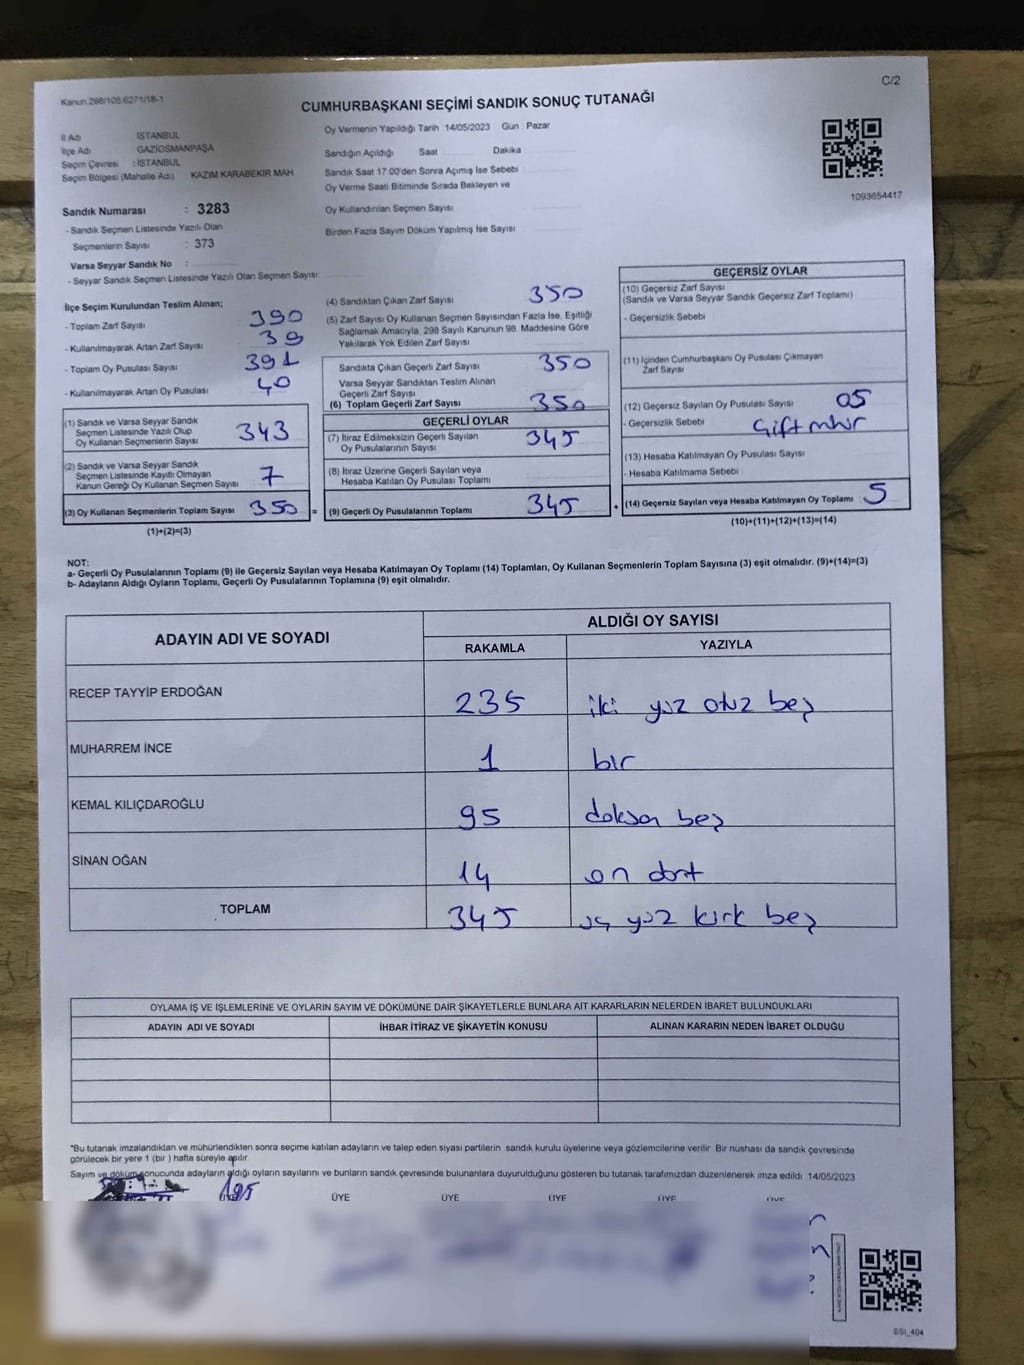 Kanun.298/105.6271/18-1
C/2
CUMHURBAŞKANI SEÇİMİ SANDIK SONUÇ TUTANAĞI
İl Adı İSTANBUL
İlçe Adı GAZİOSMANPAŞA
Seçim Çevresi : İSTANBUL
Seçim Bölgesi (Mahalle Adı) KAZIM KARABEKİR MAH.
Oy Vermenin Yapıldığı Tarih 14/05/2023 Gün : Pazar
Sandığın Açıldığı Saat Dakika
Sandık Saat 17.00'den Sonra Açımış İse Sebebi
Oy Verme Saati Bitiminde Sırada Bekleyen ve
Oy Kullandırılan Seçmen Sayısı
Birden Fazla Sayım Döküm Yapılmış İse Sayısı
1093654417
Sandık Numarası : 3283
- Sandık Seçmen Listesinde Yazılı Olan
Seçmenlerin Sayısı : 373
Varsa Seyyar Sandık No :
- Seyyar Sandık Seçmen Listesinde Yazılı Olan Seçmen Sayısı:
İlçe Seçim Kurulundan Teslim Alınan;
- Toplam Zarf Sayısı 390
- Kullanılmayarak Artan Zarf Sayısı 39
- Toplam Oy Pusulası Sayısı 391
- Kullanılmayarak Artan Oy Pusulası 40
(1) Sandık ve Varsa Seyyar Sandık
Seçmen Listesinde Yazılı Olup
Oy Kullanan Seçmenlerin Sayısı 343
(2) Sandık ve Varsa Seyyar Sandık
Seçmen Listesinde Kayıtlı Olmayan
Kanun Gereği Oy Kullanan Seçmen Sayısı 7
(3) Oy Kullanan Seçmenlerin Toplam Sayısı 350
(1)+(2)=(3)
(4) Sandıktan Çıkan Zarf Sayısı 350
(5) Zarf Sayısı Oy Kullanan Seçmen Sayısından Fazla İse, Eşitliği
Sağlamak Amacıyla, 298 Sayılı Kanunun 98. Maddesine Göre
Yakılarak Yok Edilen Zarf Sayısı
Sandıkta Çıkan Geçerli Zarf Sayısı 350
Varsa Seyyar Sandıktan Teslim Alınan
Geçerli Zarf Sayısı
(6) Toplam Geçerli Zarf Sayısı 350
GEÇERLİ OYLAR
(7) İtiraz Edilmeksizin Geçerli Sayılan
Oy Pusulasının Sayısı 345
(8) İtiraz Üzerine Geçerli Sayılan veya
Hesaba Katılan Oy Pusulası Toplamı
= (9) Geçerli Oy Pusulalarının Toplamı 345 +
GEÇERSİZ OYLAR
(10) Geçersiz Zarf Sayısı
(Sandık ve Varsa Seyyar Sandık Geçersiz Zarf Toplamı)
- Geçersizlik Sebebi
(11) İçinden Cumhurbaşkanı Oy Pusulası Çıkmayan
Zarf Sayısı
(12) Geçersiz Sayılan Oy Pusulası Sayısı 05
- Geçersizlik Sebebi Çift mhur
(13) Hesaba Katılmayan Oy Pusulası Sayısı
- Hesaba Katılmama Sebebi
(14) Geçersiz Sayılan veya Hesaba Katılmayan Oy Toplamı 5
(10)+(11)+(12)+(13)=(14)
NOT:
a- Geçerli Oy Pusulalarının Toplamı (9) ile Geçersiz Sayılan veya Hesaba Katılmayan Oy Toplamı (14) Toplamları, Oy Kullanan Seçmenlerin Toplam Sayısına (3) eşit olmalıdır. (9)+(14)=(3)
b- Adayların Aldığı Oyların Toplamı, Geçerli Oy Pusulalarının Toplamına (9) eşit olmalıdır.
ADAYIN ADI VE SOYADI ALDIĞI OY SAYISI
RAKAMLA YAZIYLA
RECEP TAYYİP ERDOĞAN 235 iki yuz otuz beş
MUHARREM İNCE 1 bır
KEMAL KILIÇDAROĞLU 95 doksan beş
SİNAN OĞAN 14 on dört
TOPLAM 345 üç yüz kırk beş
OYLAMA İŞ VE İŞLEMLERİNE VE OYLARIN SAYIM VE DÖKÜMÜNE DAİR ŞİKAYETLERLE BUNLARA AİT KARARLARIN NELERDEN İBARET BULUNDUKLARI
ADAYIN ADI VE SOYADI İHBAR İTİRAZ VE ŞİKAYETİN KONUSU ALINAN KARARIN NEDEN İBARET OLDUĞU
*Bu tutanak imzalandıktan ve mühürlendikten sonra seçime katılan adayların ve talep eden siyasi partilerin sandık kurulu üyelerine veya gözlemcilerine verilir Bir nushası da sandık çevresinde
görülecek bir yere 1 (bir ) hafta süreyle asılır.
Sayım ve döküm sonucunda adayların aldığı oyların sayılarını ve bunların sandık çevresinde bulunanlara duyurulduğunu gösteren bu tutanak tarafımızdan düzenlenerek imza edildi 14/05/2023
ÜYE ÜYE ÜYE ÜYE ÜYE
BSI_404